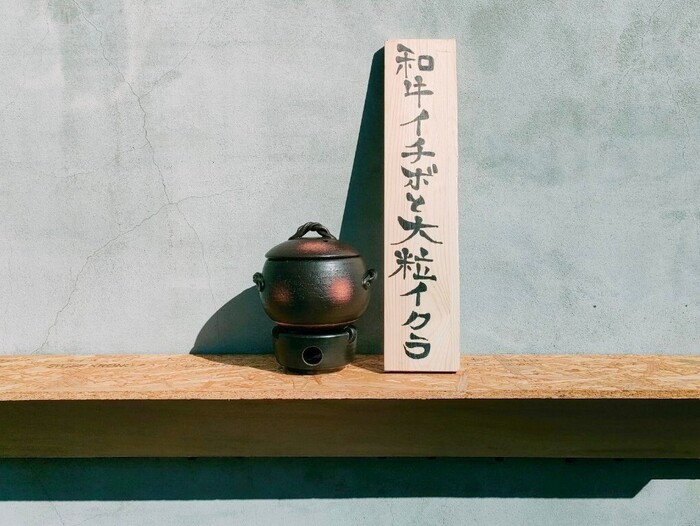 和牛イチボと大粒イクラ